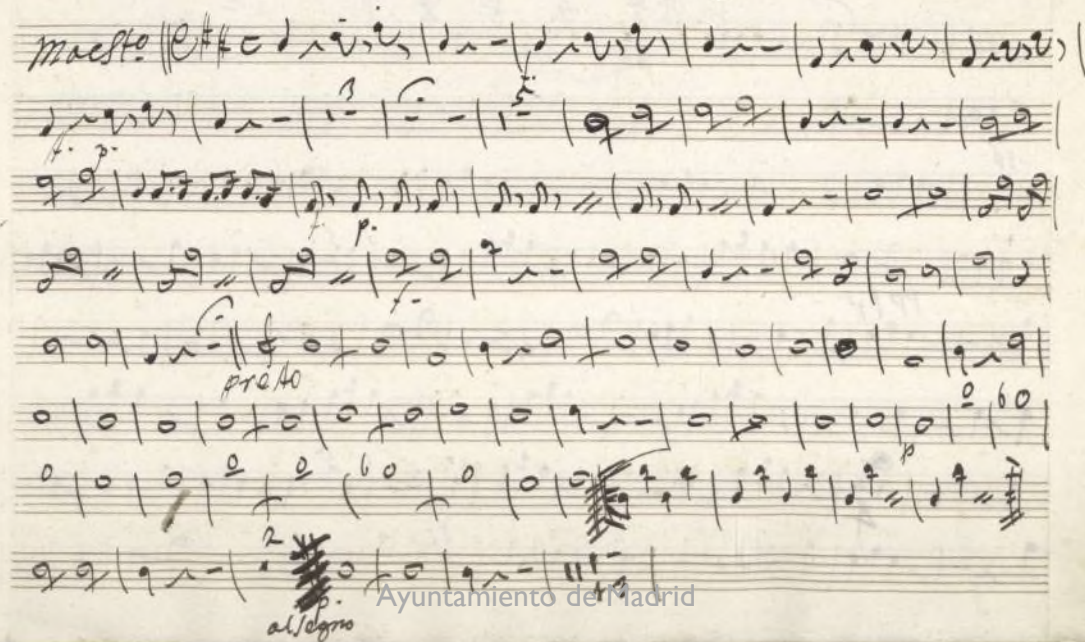 Maesto
3
5
f. p.
f. p.
f.
presto
p
2
p.
al segno
Ayuntamiento de Madrid